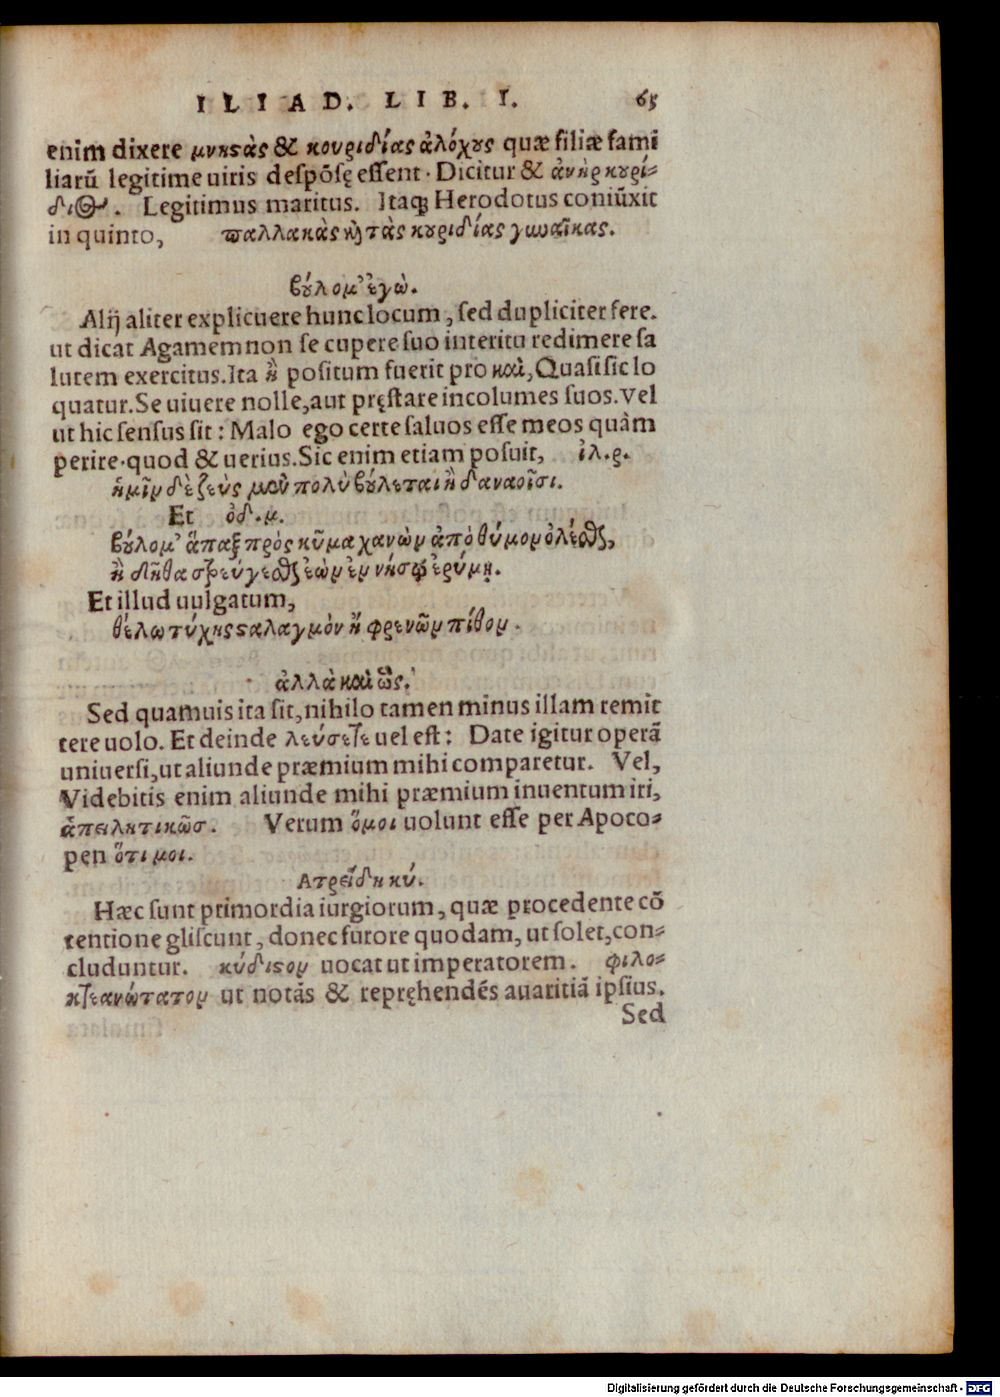 ILIAD. LIB. I. 65
enim dixere μνηϛὰς & κουριδίας ἀλόχους quæ filiæ fami
liarū legitime uiris despōsę essent. Dicitur & ἀνὴρ κουρί-
διος. Legitimus maritus. Itaq; Herodotus coniūxit
in quinto, παλλακὰς ἢ τὰς κουριδίας γυναῖκας.
βούλομ' ἐγὼ.
Alij aliter explicuere hunc locum, sed dupliciter fere.
ut dicat Agamemnon se cupere suo interitu redimere sa
lutem exercitus. Ita ἢ positum fuerit pro καὶ, Quasi sic lo
quatur. Se uiuere nolle, aut pręstare incolumes suos. Vel
ut hic sensus sit: Malo ego certe saluos esse meos quàm
perire. quod & uerius. Sic enim etiam posuit, ἰλ. ρ.
ἡμῖν δὲ ζεὺς μὲν πολὺ βούλεται ἢ δαναοῖσι.
Et ὀδ. μ.
βούλομ' ἅπαξ πρὸς κῦμα χανὼν ἀπὸ θύμον ὀλέσθαι,
ἢ δηθα στρεύγεσθαι ἐὼν ἐν νήσῳ ἐρύμῃ.
Et illud uulgatum,
θέλω τύχης ϛαλαγμὸν ἢ φρενῶν πίθον.
ἀλλὰ καὶ ὣς.
Sed quamuis ita sit, nihilo tamen minus illam remit
tere uolo. Et deinde λεύσετε uel est: Date igitur operā
uniuersi, ut aliunde præmium mihi comparetur. Vel,
Videbitis enim aliunde mihi præmium inuentum iri,
ἀπειλητικῶσ. Verum ὅμοι uolunt esse per Apoco-
pęn ὅτι μοι.
Ἀτρείδη κύ.
Hæc sunt primordia iurgiorum, quæ procedente cō
tentione gliscunt, donec furore quodam, ut solet, con-
cluduntur. κύδιϛον uocat ut imperatorem. φιλο-
κτεανώτατον ut notās & repręhendēs auaritiā ipsius.
Sed
Digitalisierung gefördert durch die Deutsche Forschungsgemeinschaft - DFG